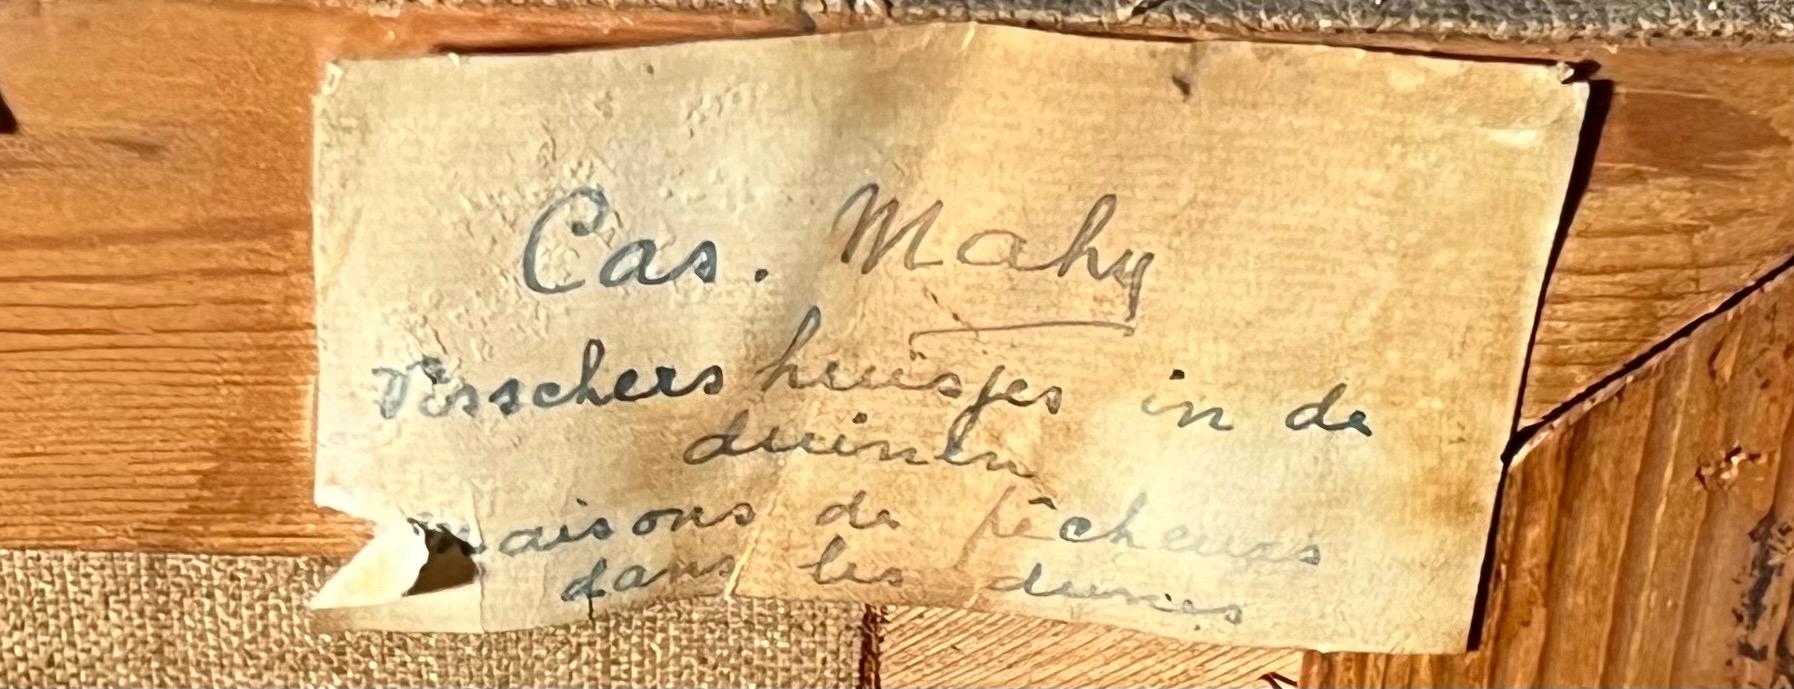 Cas. Mahy
Visschers huisjes in de
duinen
maisons de pêcheurs
dans les dunes